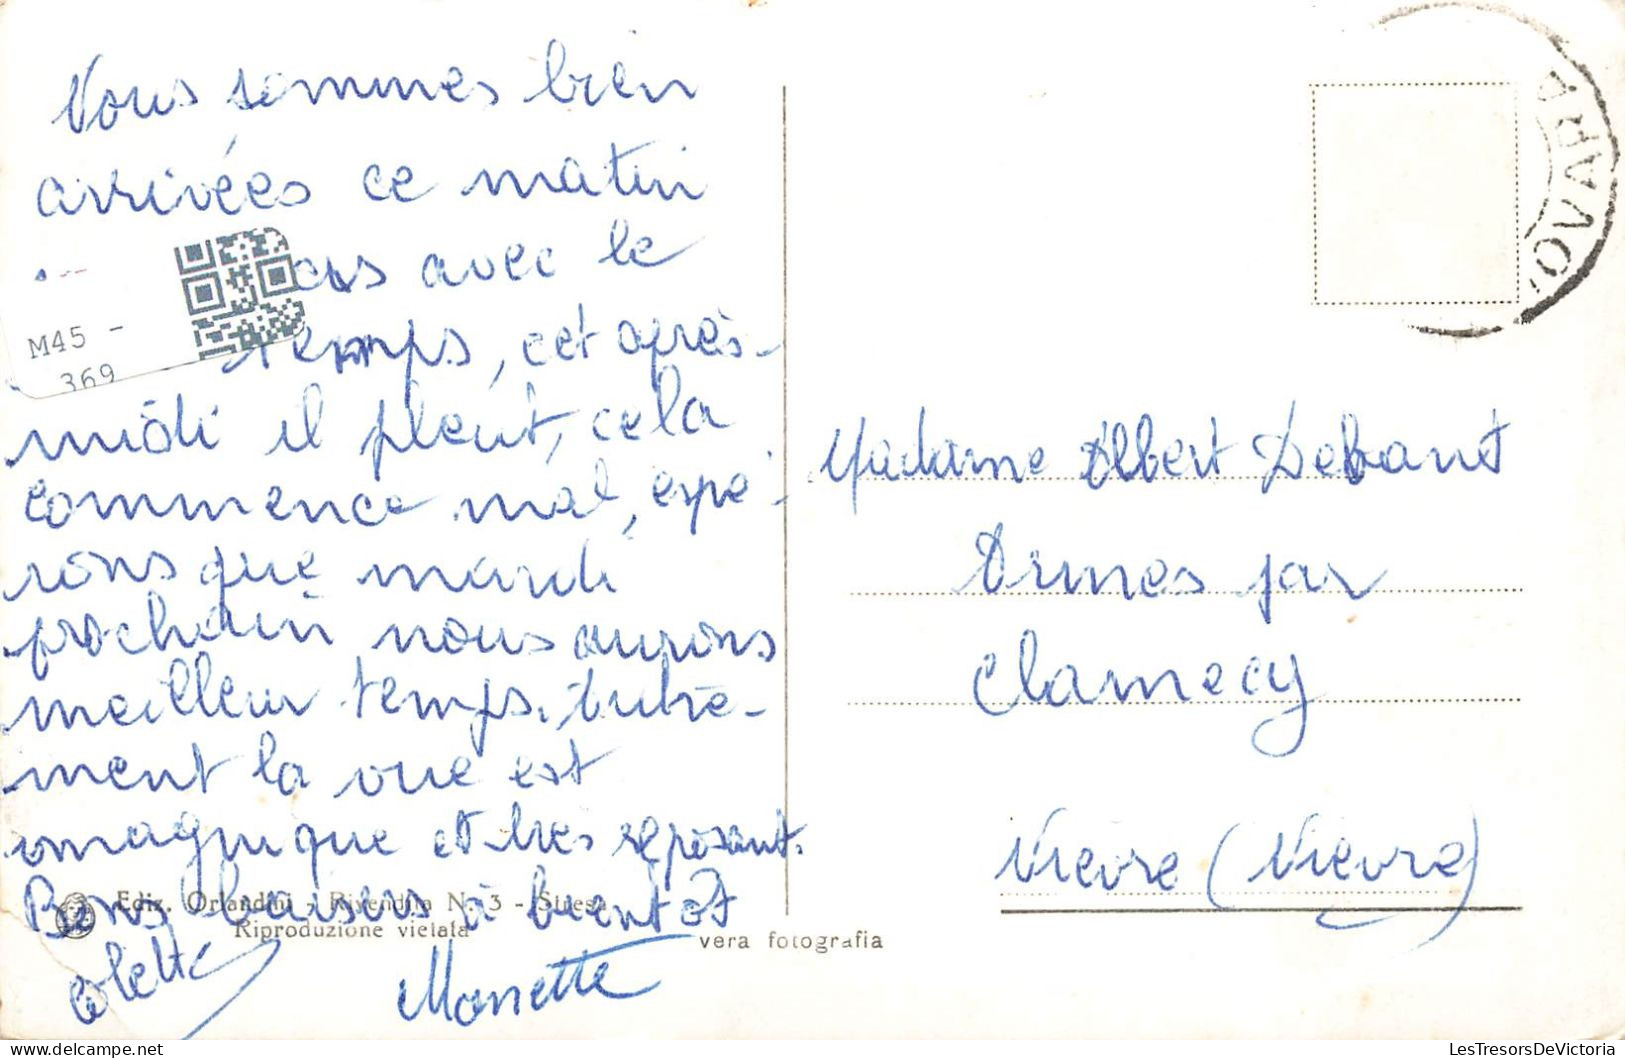 Nous sommes bien
arrivées ce matin
avec le
temps, cet après-
midi il pleut, cela
commence mal, espé-
rons que mardi
prochain nous aurons
meilleur temps. Autre-
ment la vue est
magnifique et très reposant.
Bons baisers à bientôt
Colette
Monette
M45 -
369
Ediz. Orlandini - Rivendita N. 3 - Stresa
Riproduzione vietata
vera fotografia
NOVARA
Madame Albert Debant
Armes par
Clamecy
Nièvre (Nièvre)
LesTresorsDeVictoria